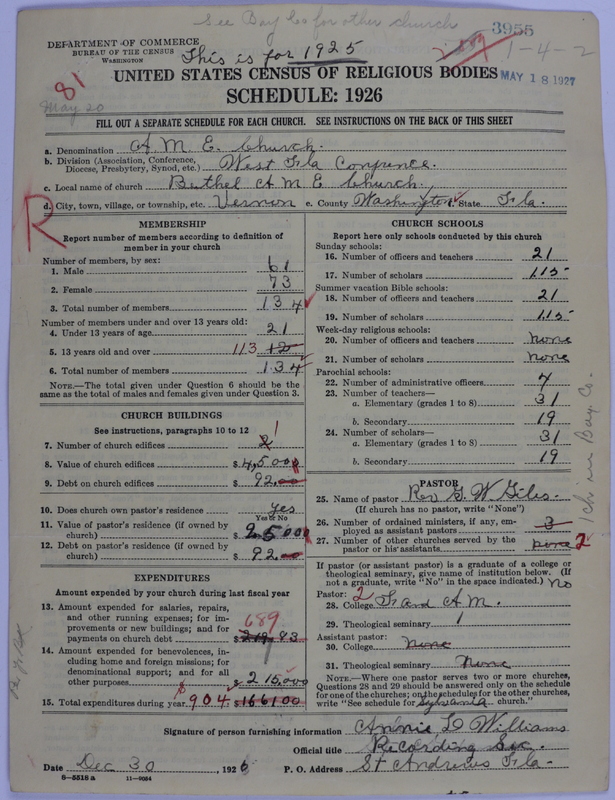 See Bay Co for other church
3955
DEPARTMENT OF COMMERCE
BUREAU OF THE CENSUS
WASHINGTON
This is for 1925
1-4-2
81
May 20
UNITED STATES CENSUS OF RELIGIOUS BODIES
MAY 18 1927
SCHEDULE: 1926
FILL OUT A SEPARATE SCHEDULE FOR EACH CHURCH. SEE INSTRUCTIONS ON THE BACK OF THIS SHEET
a. Denomination A M E Church.
b. Division (Association, Conference, Diocese, Presbytery, Synod, etc.) West Fla Conference.
c. Local name of church Bethel A M E Church.
d. City, town, village, or township, etc. Vernon e. County Washington f. State Fla.
R
MEMBERSHIP
Report number of members according to definition of
member in your church
Number of members, by sex:
1. Male 61
2. Female 73
3. Total number of members 134
Number of members under and over 13 years old:
4. Under 13 years of age 21
5. 13 years old and over 113 12
6. Total number of members 134
NOTE.—The total given under Question 6 should be the
same as the total of males and females given under Question 3.
CHURCH BUILDINGS
See instructions, paragraphs 10 to 12
7. Number of church edifices 2 1
8. Value of church edifices $ 4,5000
9. Debt on church edifices $ 92.00
10. Does church own pastor's residence yes
Yes or No
11. Value of pastor's residence (if owned by
church) $ 25000
12. Debt on pastor's residence (if owned by
church) $ 92.00
EXPENDITURES
Amount expended by your church during last fiscal year
13. Amount expended for salaries, repairs,
and other running expenses; for im-
provements or new buildings; and for
payments on church debt 689 $
14. Amount expended for benevolences, in-
cluding home and foreign missions; for
denominational support; and for all
other purposes $ 215,000
15. Total expenditures during year $ 904 $ 166100
CHURCH SCHOOLS
Report here only schools conducted by this church
Sunday schools:
16. Number of officers and teachers 21
17. Number of scholars 115
Summer vacation Bible schools:
18. Number of officers and teachers 21
19. Number of scholars 115
Week-day religious schools:
20. Number of officers and teachers none
21. Number of scholars none
Parochial schools:
22. Number of administrative officers 4
23. Number of teachers—
a. Elementary (grades 1 to 8) 31
b. Secondary 19
24. Number of scholars—
a. Elementary (grades 1 to 8) 31
b. Secondary 19
1 ch in Bay Co.
PASTOR
25. Name of pastor Rev G. W. Giles.
(If church has no pastor, write "None")
26. Number of ordained ministers, if any, em-
ployed as assistant pastors 3
27. Number of other churches served by the
pastor or his assistants none 2
If pastor (or assistant pastor) is a graduate of a college or
theological seminary, give name of institution below. (If
not a graduate, write "No" in the space indicated.) No
Pastor: 2
28. College F and A M.
29. Theological seminary 1
Assistant pastor:
30. College none
31. Theological seminary None
NOTE.—Where one pastor serves two or more churches,
Questions 28 and 29 should be answered only on the schedule
for one of the churches; on the schedules for the other churches,
write "See schedule for Sylvania church."
Signature of person furnishing information Annie L Williams
Official title Recording Sec.
Date Dec 30, 1926 P. O. Address St Andrews Fla.
8-5518 a 11-9064